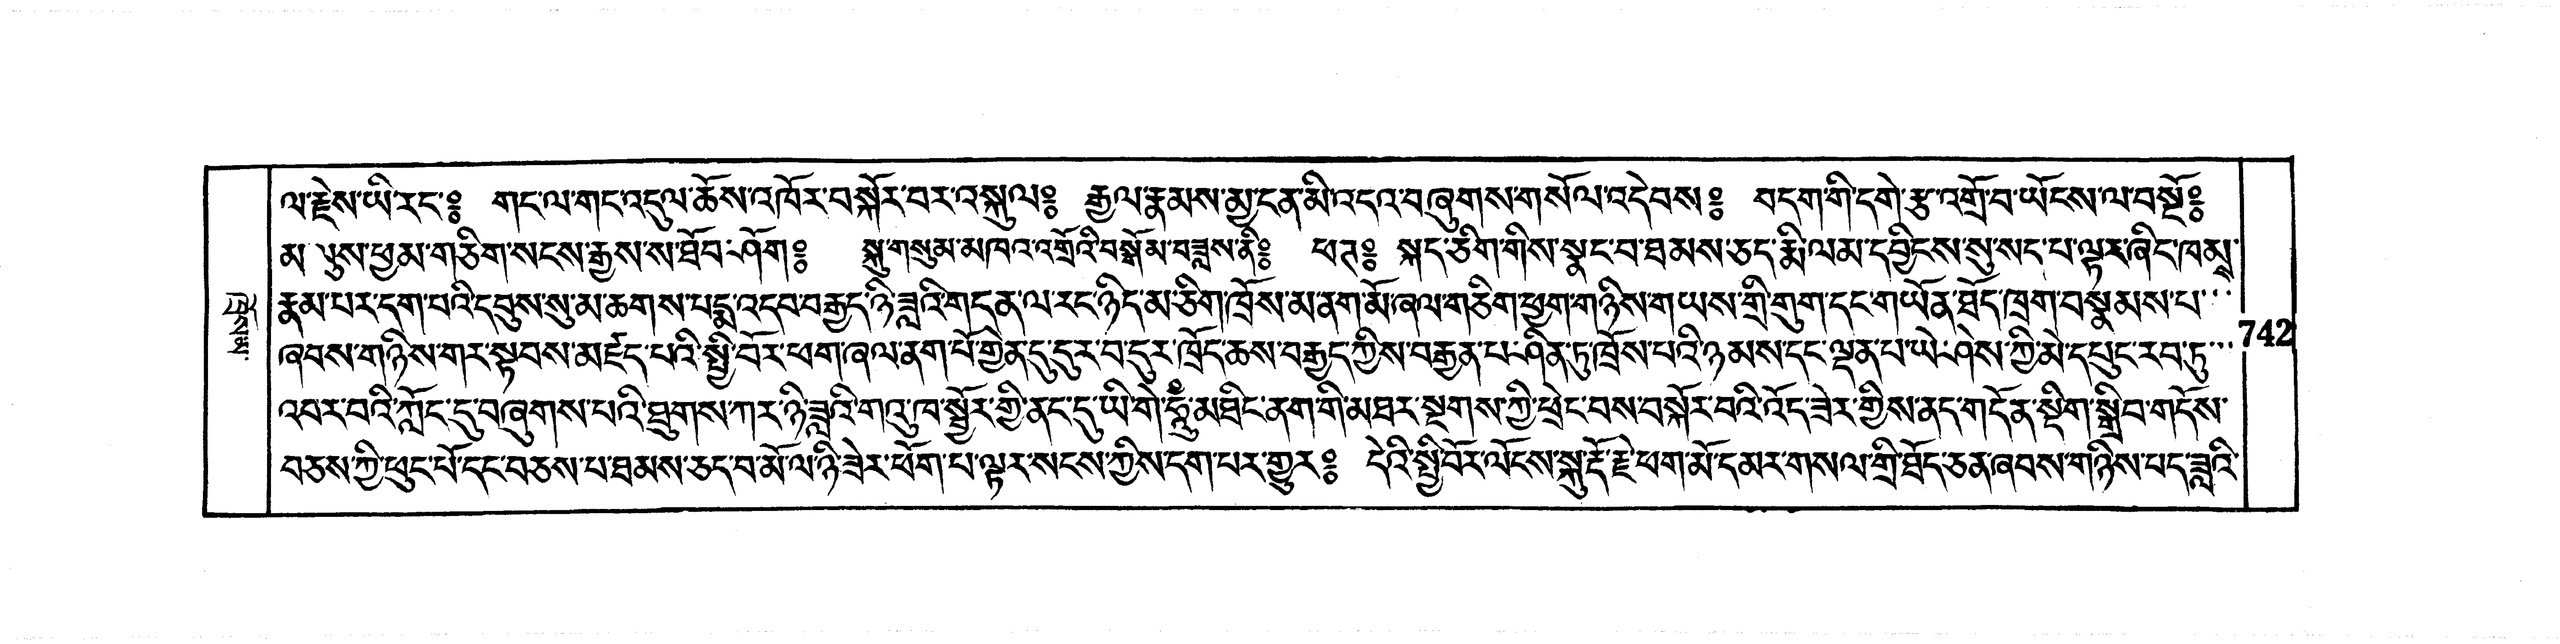 ལ་རྗེས་ཡི་རང་༔ གང་ལ་གང་འདུལ་ཆོས་འཁོར་བསྐོར་བར་བསྐུལ༔ རྒྱལ་རྣམས་མྱ་ངན་མི་འདའ་བཞུགས་གསོལ་འདེབས༔ བདག་གི་དགེ་རྩ་འགྲོ་བ་ཡོངས་ལ་བསྔོ༔
མ་ལུས་ཕྱམ་གཅིག་སངས་རྒྱས་ས་ཐོབ་ཤོག༔ སྐུ་གསུམ་མཁའ་འགྲོའི་བསྒོམ་བཟླས་ནི༔ ཕཊ༔ སྐད་ཅིག་གིས་སྣང་བ་ཐམས་ཅད་རྨི་ལམ་དབྱིངས་སུ་སང་པ་ལྟར་ཞིང་ཁམས་
རྣམ་པར་དག་བའི་དབུས་སུ་མ་ཆགས་པདྨ་འདབ་བརྒྱད་ཉི་ཟླའི་གདན་ལ་རང་ཉིད་མ་ཅིག་ཁྲོས་མ་ནག་མོ་ཞལ་གཅིག་ཕྱག་གཉིས་གཡས་གྲི་གུག་དང་གཡོན་ཐོད་ཁྲག་བསྣམས་པ་
742
ཞབས་གཉིས་གར་སྟབས་མཛད་པའི་སྤྱི་བོར་ཕག་ཞལ་ནག་པོ་གྱེན་དུ་དུར་བ་དུར་ཁྲོད་ཆས་བརྒྱད་ཀྱིས་བརྒྱན་པ་ཤིན་ཏུ་ཁྲོས་པའི་ཉམས་དང་ལྡན་པ་ཡེ་ཤེས་ཀྱི་མེ་དཔུང་རབ་ཏུ་
འབར་བའི་ཀློང་དུ་བཞུགས་པའི་ཐུགས་ཀར་ཉི་ཟླའི་གའུ་ཁ་སྦྱོར་གྱི་ནང་དུ་ཡི་གེ་ཧཱུྃ་མཐིང་ནག་གི་མཐར་སྔགས་ཀྱི་ཕྲེང་བས་བསྐོར་བའི་འོད་ཟེར་གྱིས་ནད་གདོན་སྡིག་སྒྲིབ་གདོས་
བཅས་ཀྱི་ཕུང་པོ་དང་བཅས་པ་ཐམས་ཅད་བ་མོ་ལ་ཉི་ཟེར་ཕོག་པ་ལྟར་སངས་ཀྱིས་དག་པར་གྱུར༔ དེའི་སྤྱི་བོར་ལོངས་སྐུ་རྡོ་རྗེ་ཕག་མོ་དམར་གསལ་གྲི་ཐོད་ཅན་ཞབས་གཉིས་པད་ཟླའི་